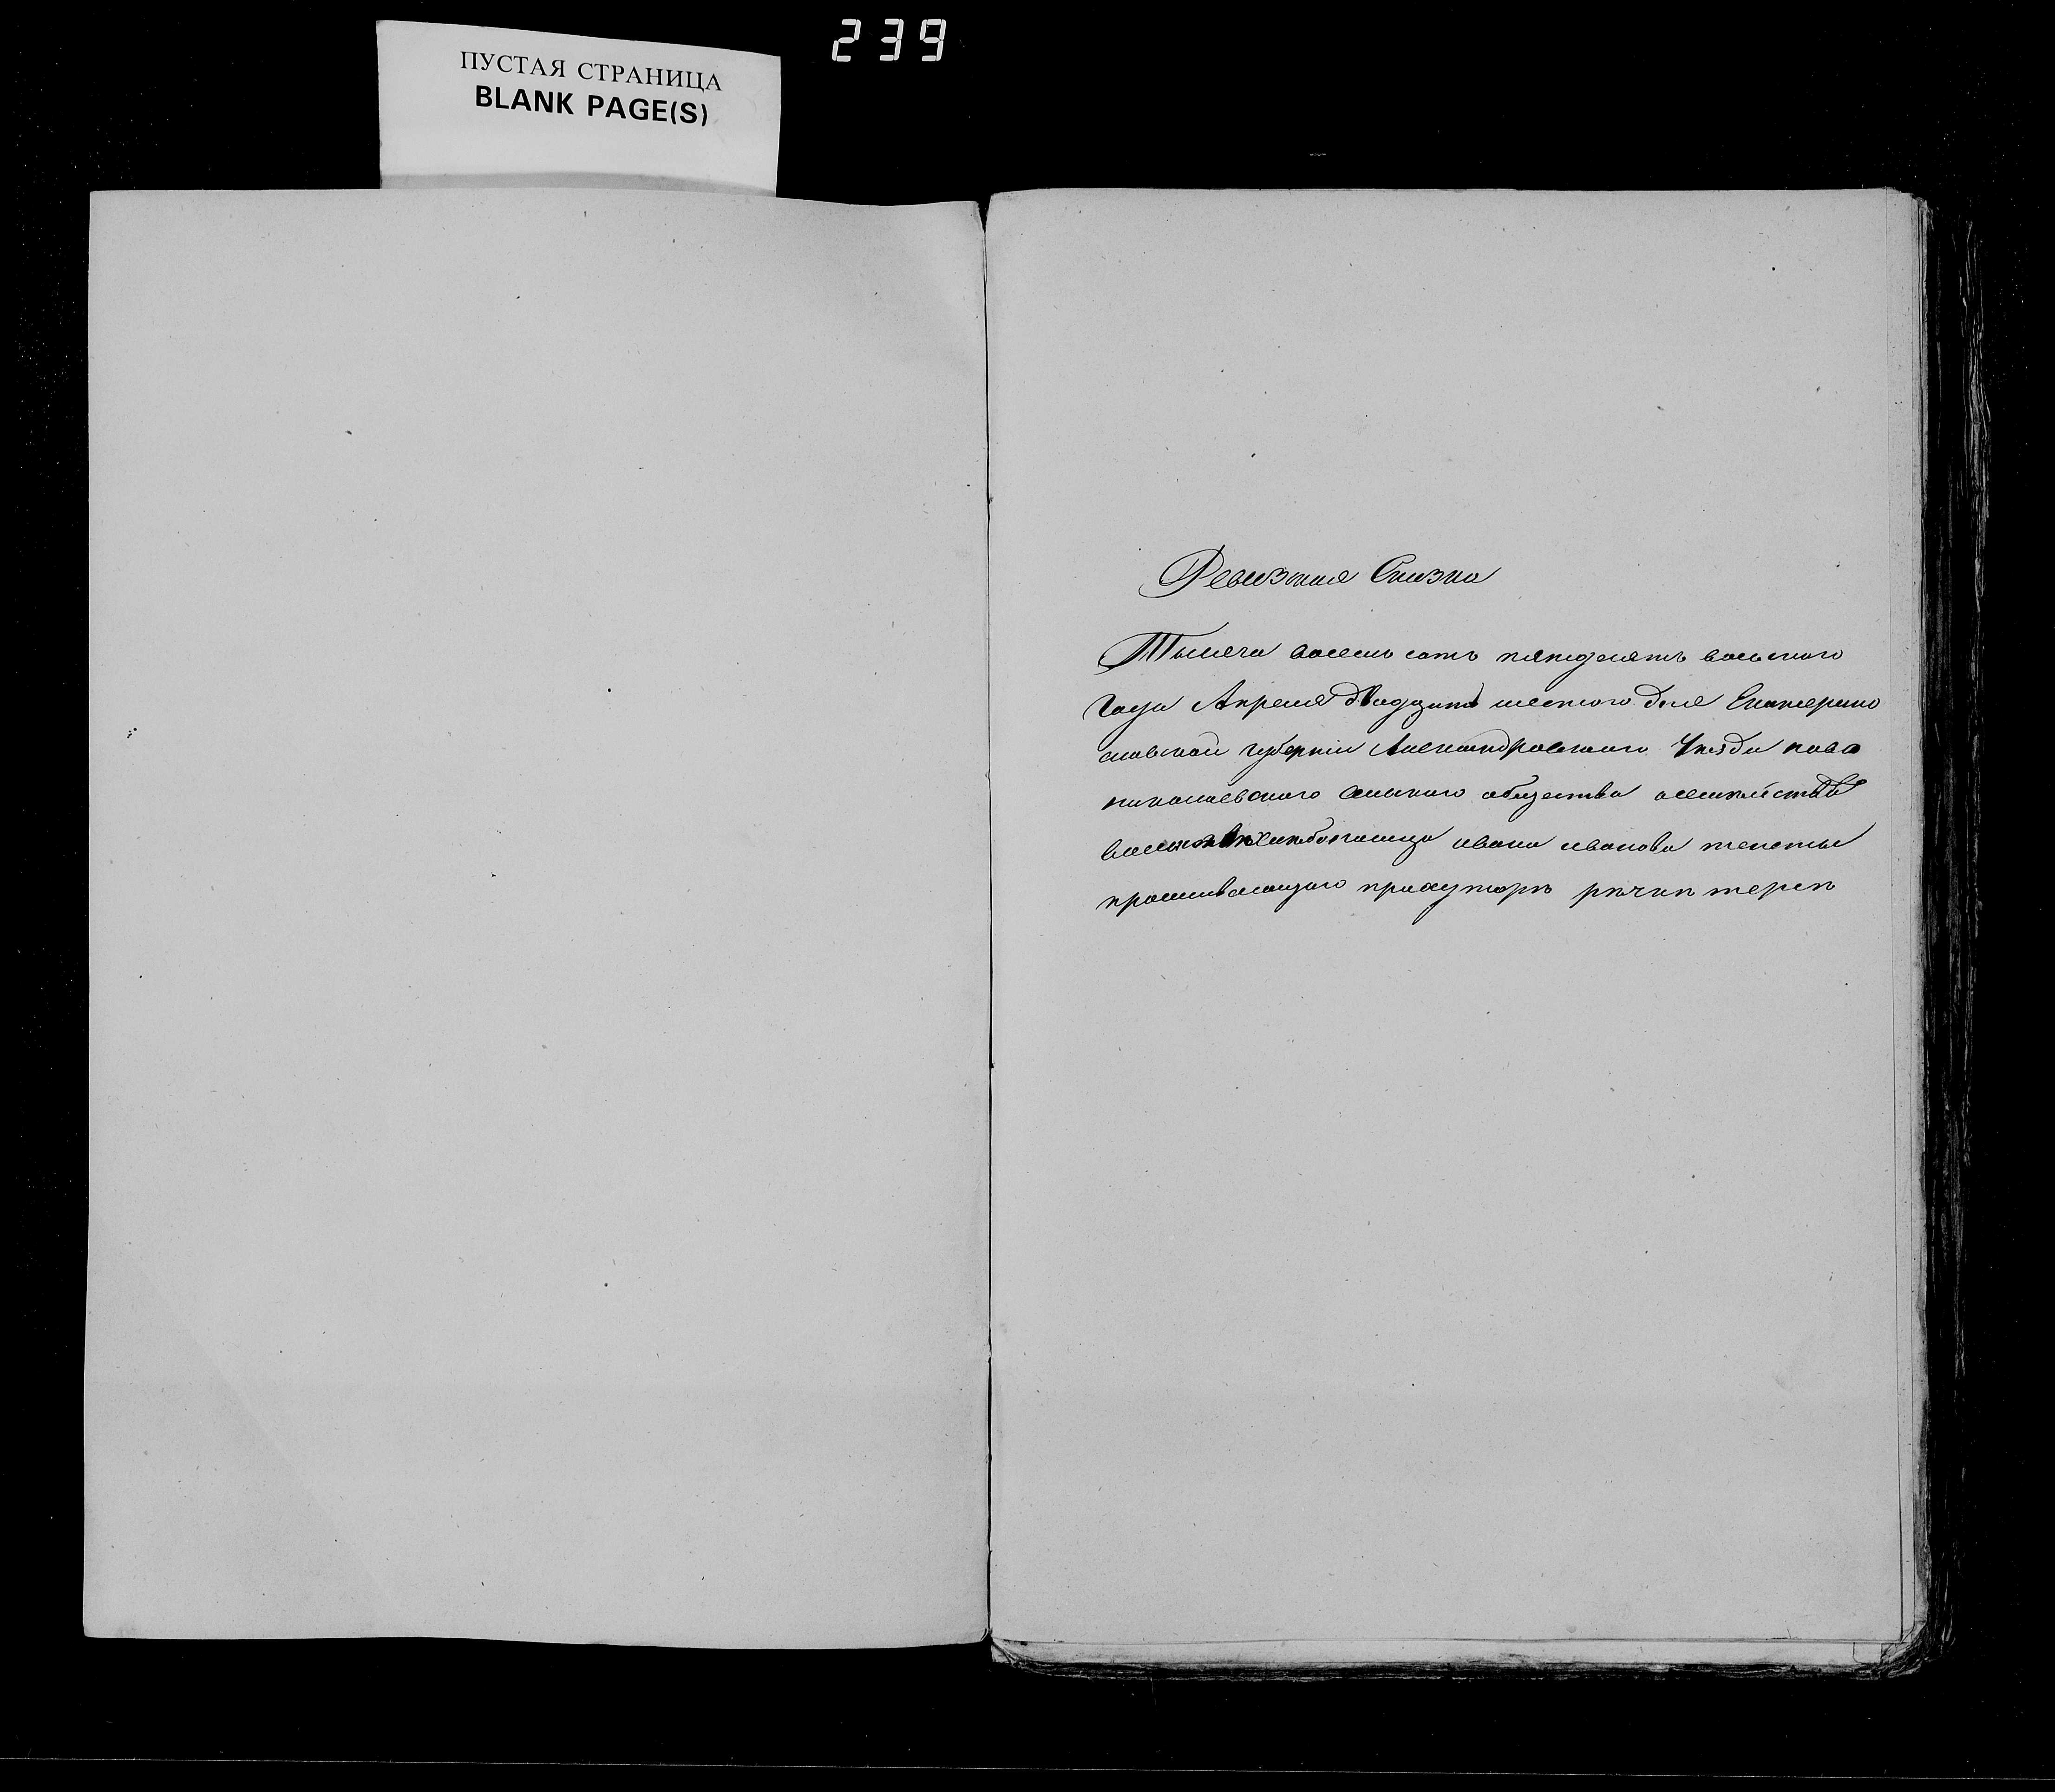 ПУСТАЯ СТРАНИЦА
BLANK PAGE(S)
239
Ревизкая Сказка
Тысеча восемь сотъ пятдесятъ восмого
Года Апреля двадцать шестого дня Екатерино
славской губерніи Александровского Уезда ново
николаевского сельского общества
хлебопашца ивана иванова